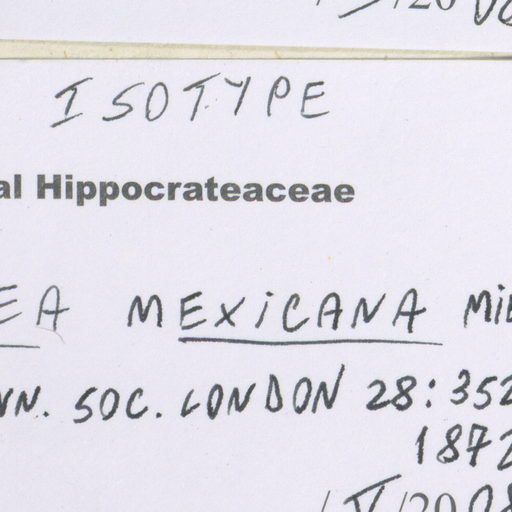 ISOTYPE
al Hippocrateaceae
EA MEXICANA MiE
NN. SOC. LONDON 28:352
1872
/IV/2008